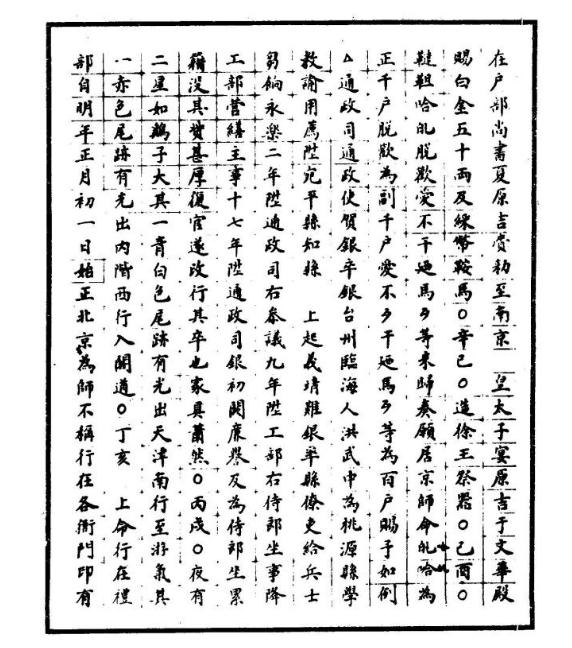 在戶部尚書夏原吉賞勑至南京 皇太子宴原吉于文華殿
賜白金五十兩及綵幣鞍馬○辛巳○造徐王祭器○己酉○
韃靼哈乩脫歡愛不干廸馬丏等來歸奏願居京師命乩哈為
正千戶脫歡為副千戶愛不丏干廸馬丏等為百戶賜予如例
△通政司通政使賀銀卒銀台州臨海人洪武中為桃源縣學
教諭用薦陞宛平縣知縣 上起義靖難銀率縣僚吏給兵士
芻餉永樂二年陞通政司右叅議九年陞工部右侍郎坐事降
工部營繕主事十七年陞通政司銀初閑廉譽及為侍郎坐累
籍沒其貲甚厚復官遂改行其卒也家具蕭然○丙戌○夜有
二星如鷄子大其一青白色尾跡有光出天津南行至游氣其
一赤色尾跡有光出內階西行入閣道○丁亥 上命行在禮
部自明年正月初一日始正北京為師不稱行在各衙門印有